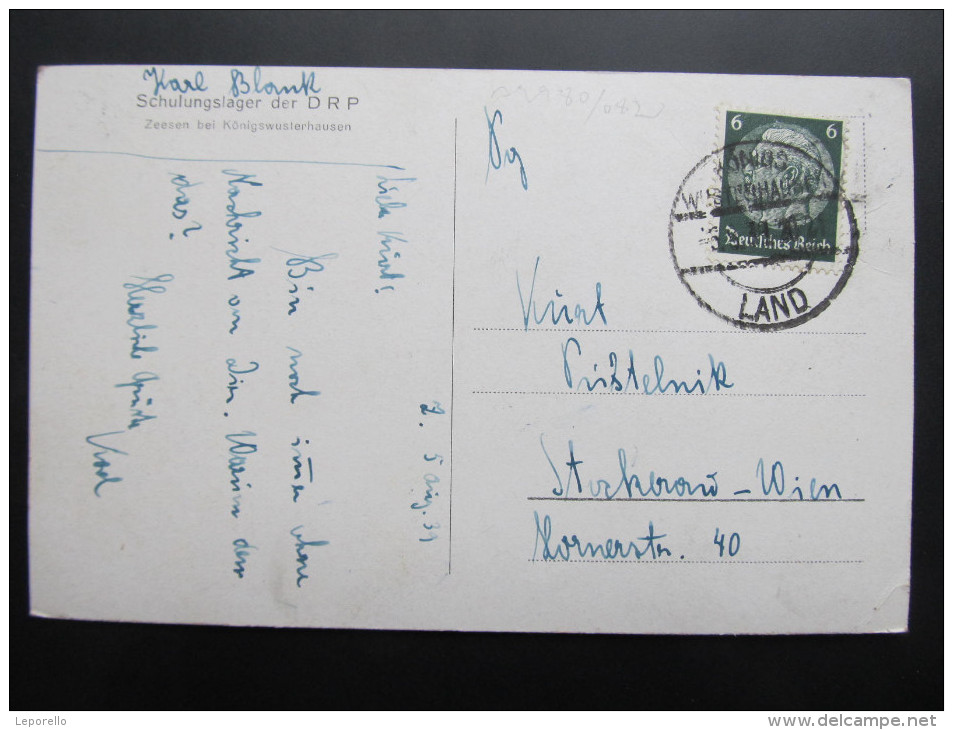 Karl Blank
Schulungslager der DRP
Zeesen bei Königswusterhausen
Z. 5 Aug. 39
Lieber Kurt!
Bin noch immer ohne
Nachricht von Dir. Warum denn
das?
Herzliche Grüße
Karl
6 6
Deutsches Reich
KÖNIGS
WUSTERHAUSEN
LAND
Kurt
Pužtelnik
Stockerau - Wien
Hornerstr. 40
Leporello
www.delcampe.net